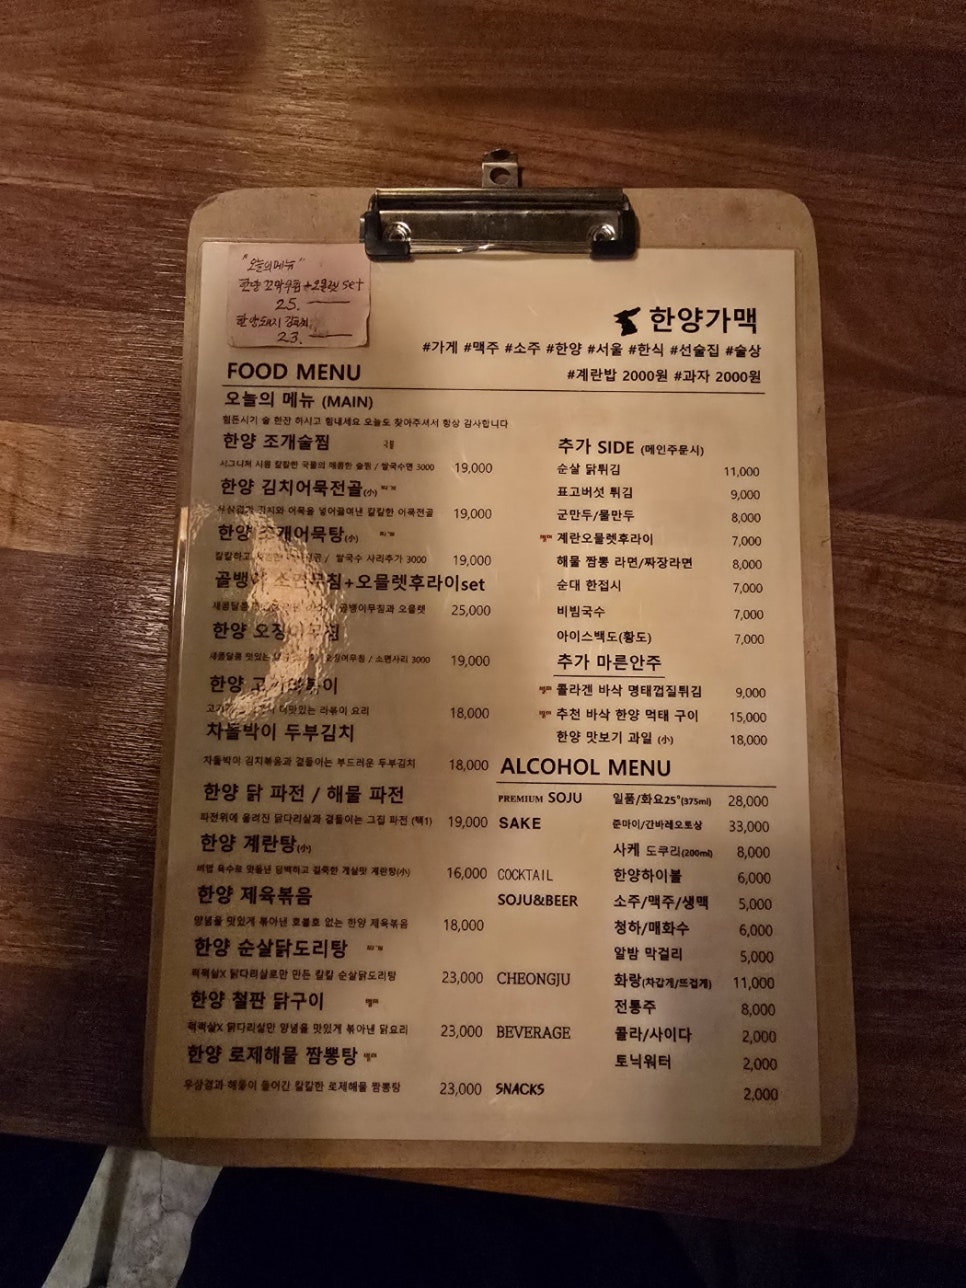 "오늘의메뉴"
한양 꼬막무침+오믈렛 set
25.
한양돼지
23.
한양가맥
#가게 #맥주 #소주 #한양 #서울 #한식 #선술집 #술상
#계란밥 2000원 #과자 2000원
FOOD MENU
오늘의 메뉴 (MAIN)
힘든시기 술 한잔 하시고 힘내세요 오늘도 찾아주셔서 항상 감사합니다
한양 조개술찜
시그니처 시원 칼칼한 국물의 매콤한 술찜 / 쌀국수면 3000 19,000
한양 김치어묵전골(小)
김치와 어묵을 넣어끓여낸 칼칼한 어묵전골 19,000
한양 조개어묵탕(小)
칼칼하고 / 쌀국수 사리추가 3000 19,000
골뱅이 소면무침+오믈렛후라이set
새콤달콤 골뱅이무침과 오믈렛 25,000
한양 오징어무침
새콤달콤 맛있는 오징어무침 / 소면사리 3000 19,000
한양 고기떡볶이
더맛있는 라볶이 요리 18,000
차돌박이 두부김치
차돌박이 김치볶음과 곁들이는 부드러운 두부김치 18,000
한양 닭 파전 / 해물 파전
파전위에 올려진 닭다리살과 곁들이는 그집 파전 (택1) 19,000
한양 계란탕(小)
비법 육수로 만들낸 담백하고 걸쭉한 게살맛 계란탕(小) 16,000
한양 제육볶음
양념을 맛있게 볶아낸 호불호 없는 한양 제육볶음 18,000
한양 순살닭도리탕
퍽퍽살X 닭다리살로만 만든 칼칼 순살닭도리탕 23,000
한양 철판 닭구이
퍽퍽살X 닭다리살만 양념을 맛있게 볶아낸 닭요리 23,000
한양 로제해물 짬뽕탕
우삼겹과 해물이 들어간 칼칼한 로제해물 짬뽕탕 23,000
추가 SIDE (메인주문시)
순살 닭튀김 11,000
표고버섯 튀김 9,000
군만두/물만두 8,000
계란오믈렛후라이 7,000
해물 짬뽕 라면/짜장라면 8,000
순대 한접시 7,000
비빔국수 7,000
아이스백도(황도) 7,000
추가 마른안주
콜라겐 바삭 명태껍질튀김 9,000
추천 바삭 한양 먹태 구이 15,000
한양 맛보기 과일 (小) 18,000
ALCOHOL MENU
PREMIUM SOJU 일품/화요25°(375ml) 28,000
SAKE 준마이/간바레오토상 33,000
사케 도쿠리(200ml) 8,000
COCKTAIL 한양하이볼 6,000
SOJU&BEER 소주/맥주/생맥 5,000
청하/매화수 6,000
알밤 막걸리 5,000
CHEONGJU 화랑(차갑게/뜨겁게) 11,000
전통주 8,000
BEVERAGE 콜라/사이다 2,000
토닉워터 2,000
SNACKS 2,000